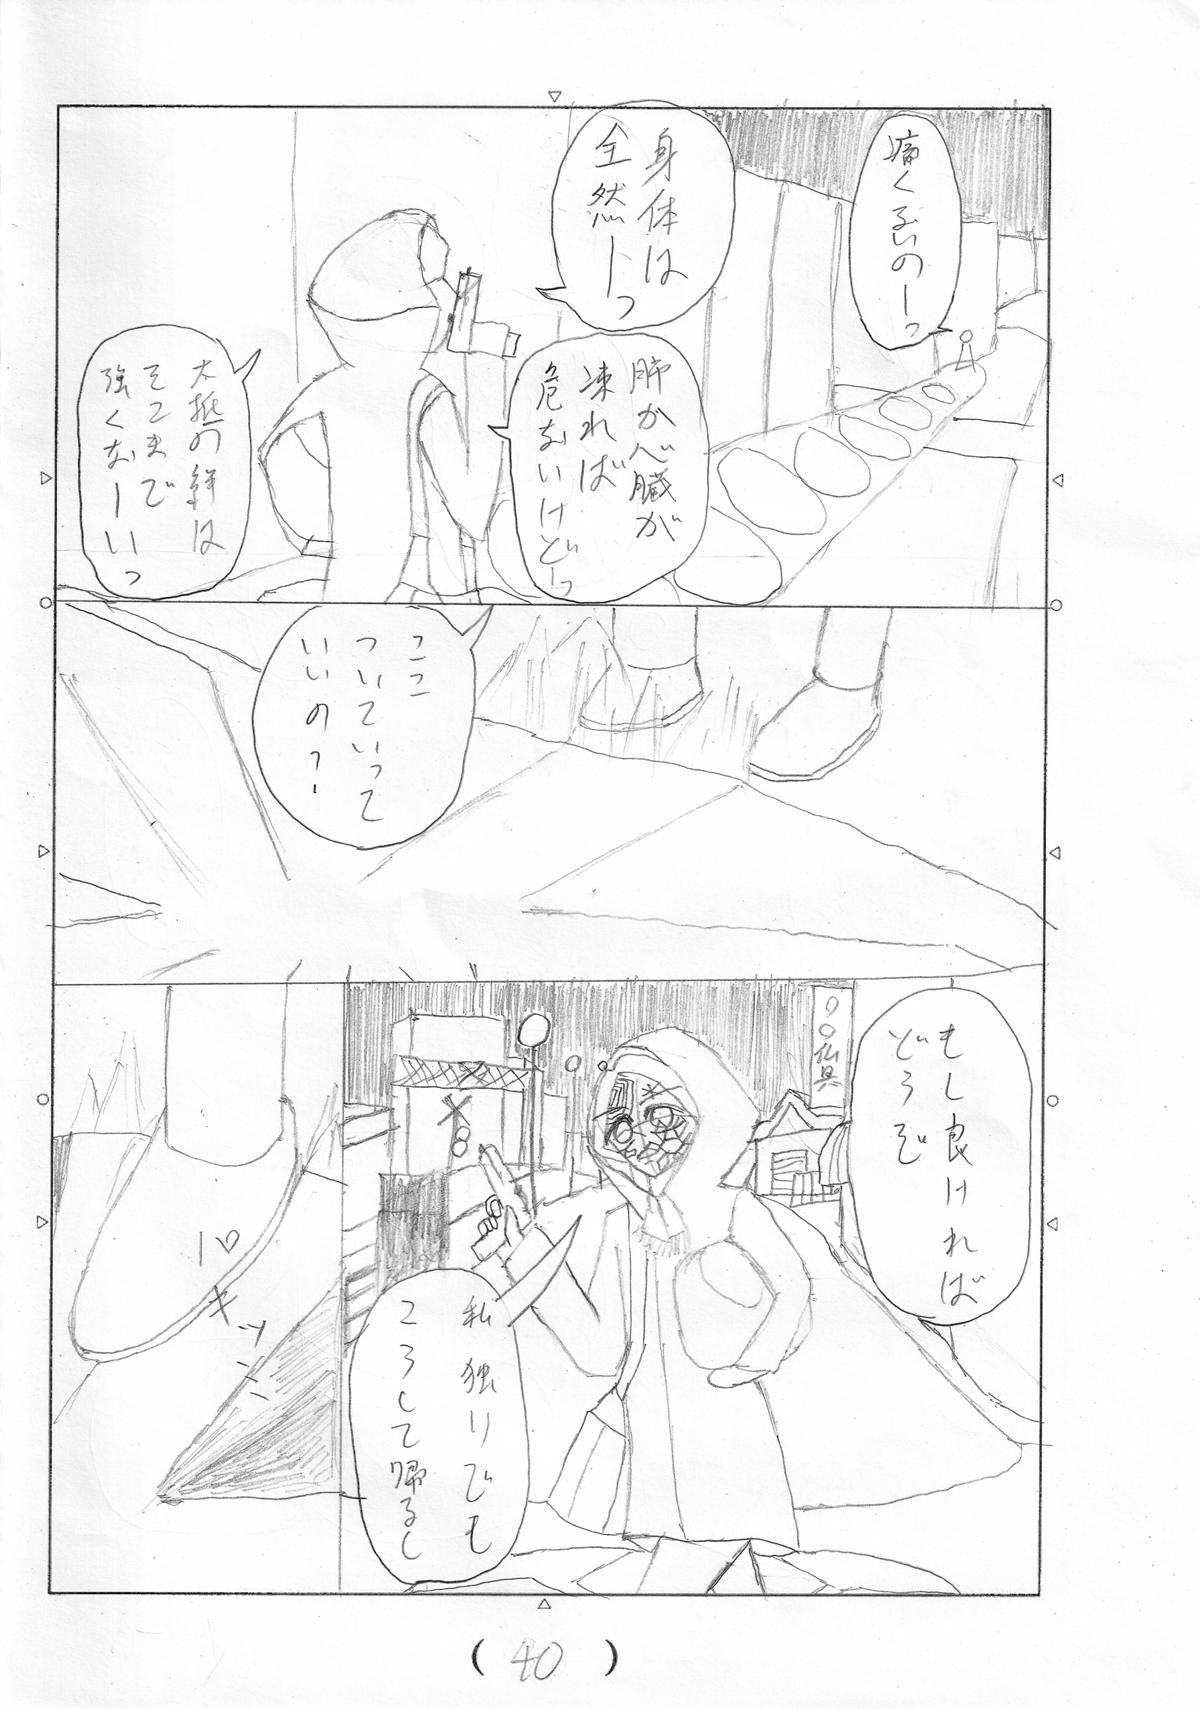 痛くないのーっ
身体は
全然ーっ
肺か心臓が
凍れば
危ないけどーっ
大抵の絆は
そこまで
強くなーいっ
ここ
ついていって
いいの？
もし良ければ
どうぞ
〇〇仏具
私独りでも
ころして帰るし
パキッ
(40)